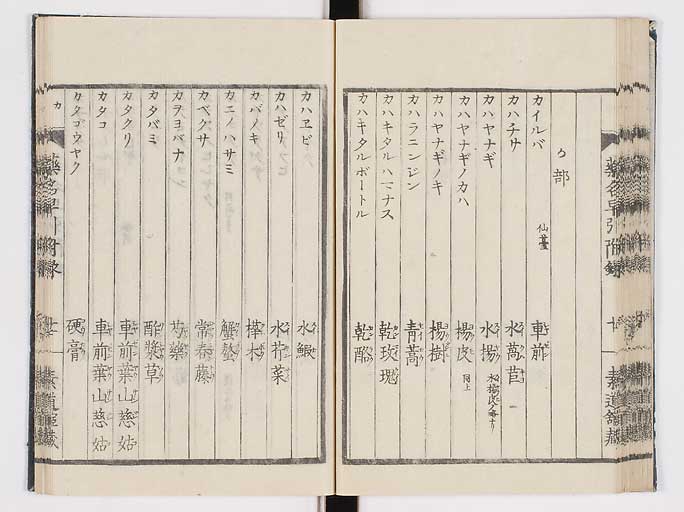 カ部
カイルバ 仙臺 車前
カハチサ 水萵苣
カハヤナギ 水楊
カハヤナギノカハ 楊皮 同上
カハヤナギノキ 楊樹
カハラニンジン 青蒿
カハキタルハマナス 乾玫瑰
カハキタルボートル 乾酪
藥名早引附録 十 素道舘藏
カハヱビ 水鰕
カハゼリ 水芹菜
カバノキ 樺木
カニノハサミ 蟹螯
カベクサ 常春藤
カヲヨバナ 芍藥
カタバミ 酢漿草
カタクリ 車前葉山慈姑
カタコ 車前葉山慈姑
カタコウヤク 硬膏
カ